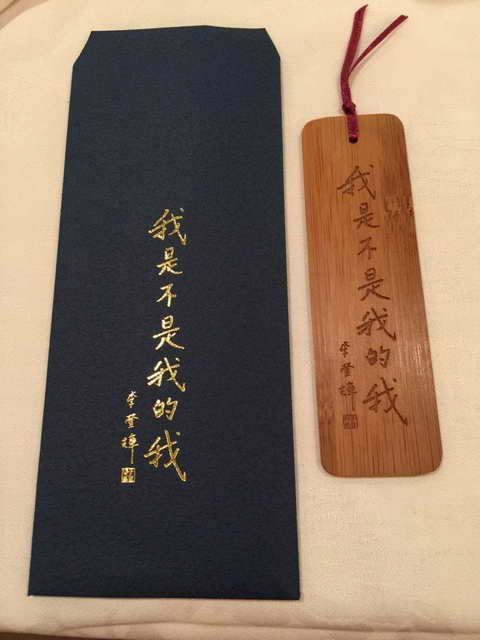 我是不是我的我
李登輝
我是不是我的我
李登輝